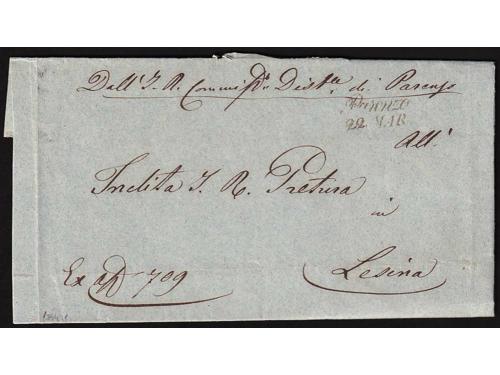 Dall' I. R. Commiss.º Dist.le di Parenzo
PARENZO
22. MAR
All'
Inclita I. R. Pretura
in
Ex off 709
Lesina